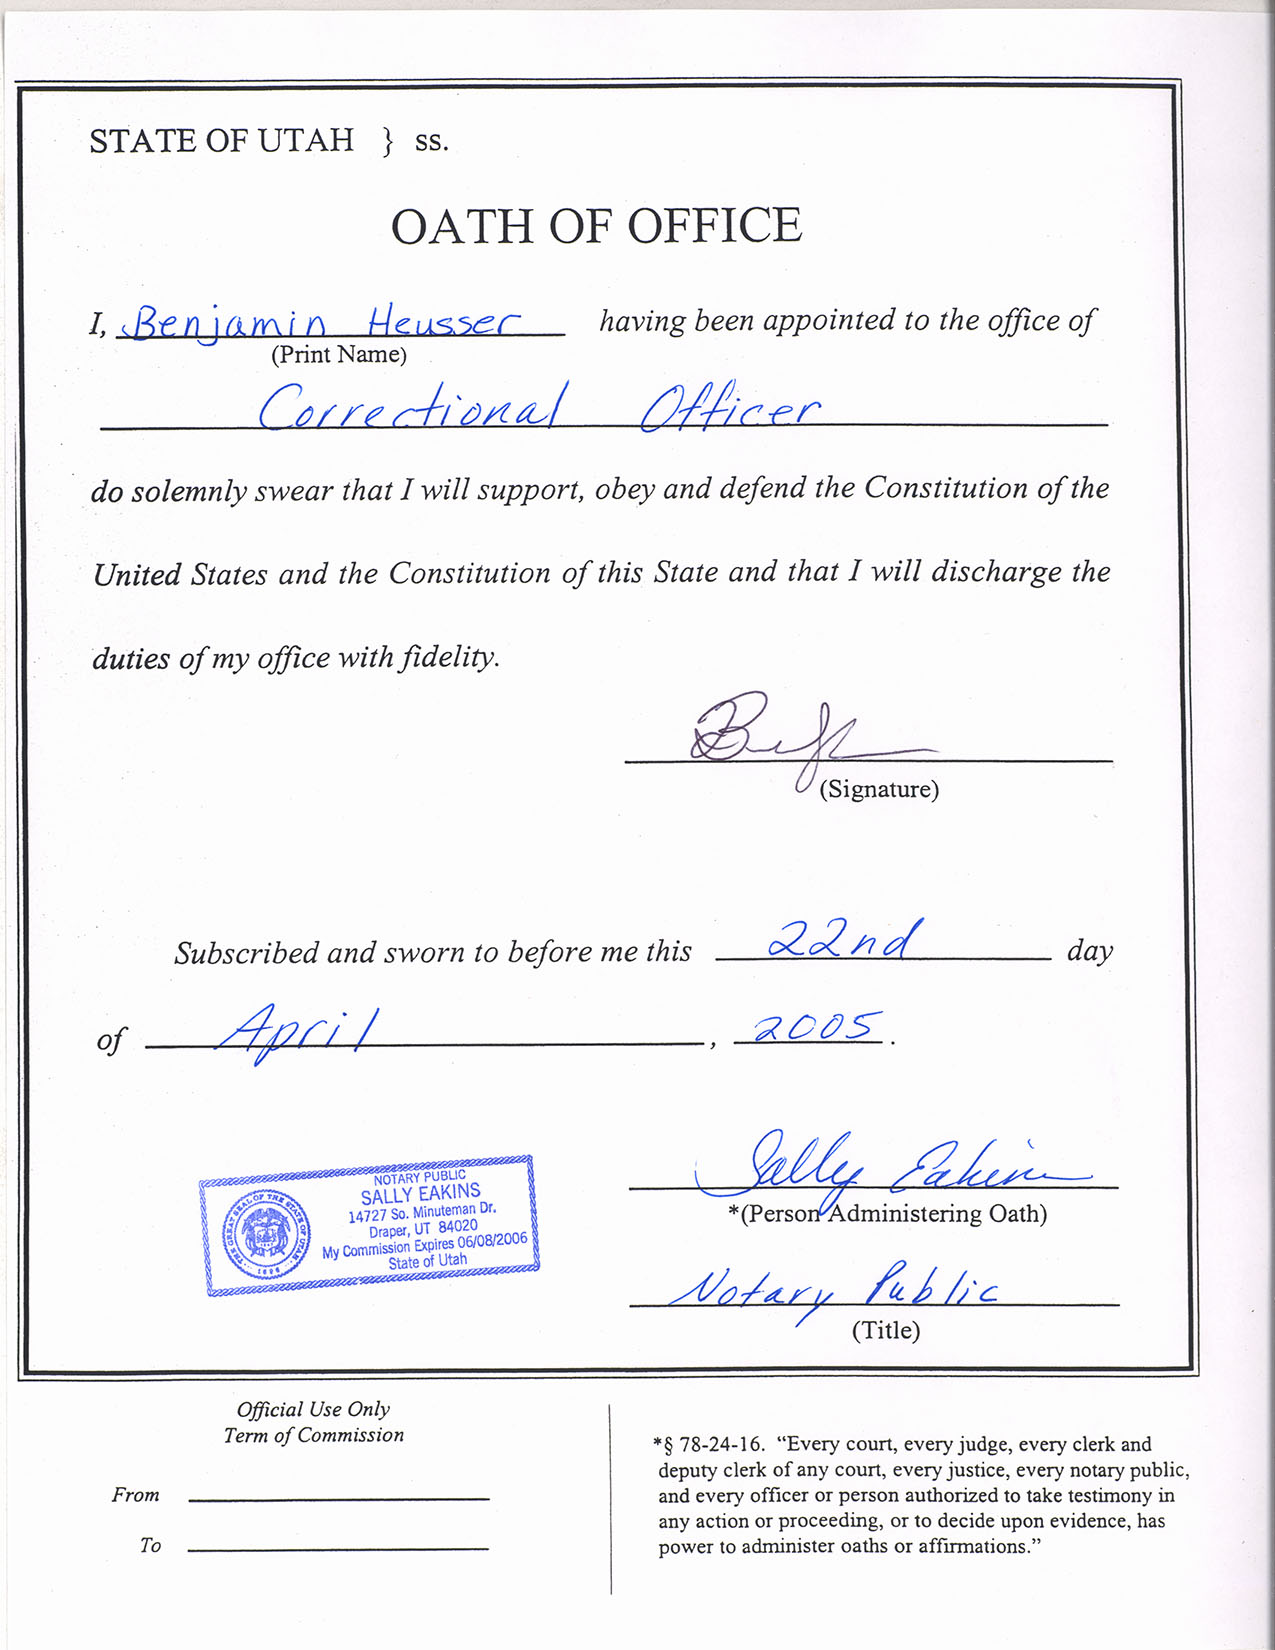 STATE OF UTAH } ss.
OATH OF OFFICE
I, Benjamin Heusser having been appointed to the office of
(Print Name)
Correctional Officer
do solemnly swear that I will support, obey and defend the Constitution of the
United States and the Constitution of this State and that I will discharge the
duties of my office with fidelity.
(Signature)
Subscribed and sworn to before me this 22nd day
of April, 2005.
Sally Eakins
*(Person Administering Oath)
Notary Public
(Title)
NOTARY PUBLIC
SALLY EAKINS
14727 So. Minuteman Dr.
Draper, UT 84020
My Commission Expires 06/08/2006
State of Utah
THE GREAT SEAL OF THE STATE OF UTAH
1896
Official Use Only
Term of Commission
From
To
*§ 78-24-16. “Every court, every judge, every clerk and
deputy clerk of any court, every justice, every notary public,
and every officer or person authorized to take testimony in
any action or proceeding, or to decide upon evidence, has
power to administer oaths or affirmations.”